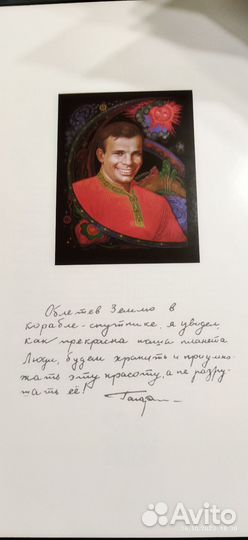 Облетев Землю в
корабле-спутнике, я увидел,
как прекрасна наша планета
Люди, будем хранить и приумно-
жать эту красоту, а не разру-
шать её!
Гагарин
Avito